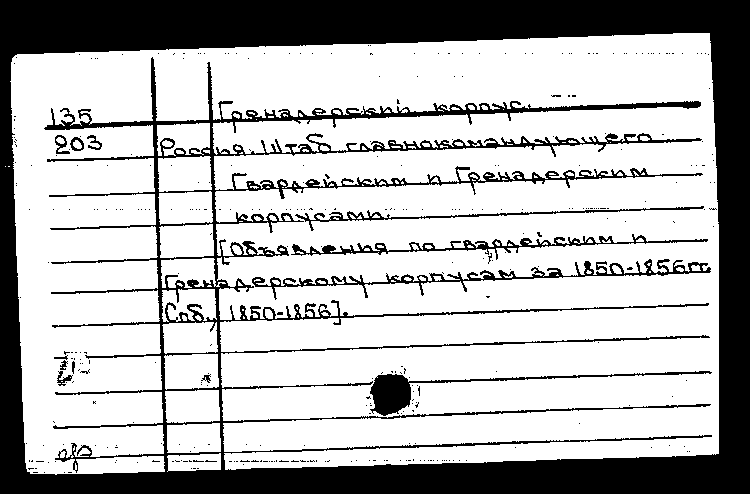 135 Гренадерский корпус.
203 Россия. Штаб главнокомандующего
Гвардейским и Гренадерским
корпусами.
[Объявления по гвардейским и
Гренадерскому корпусам за 1850-1856гг.
Спб., 1850-1856].